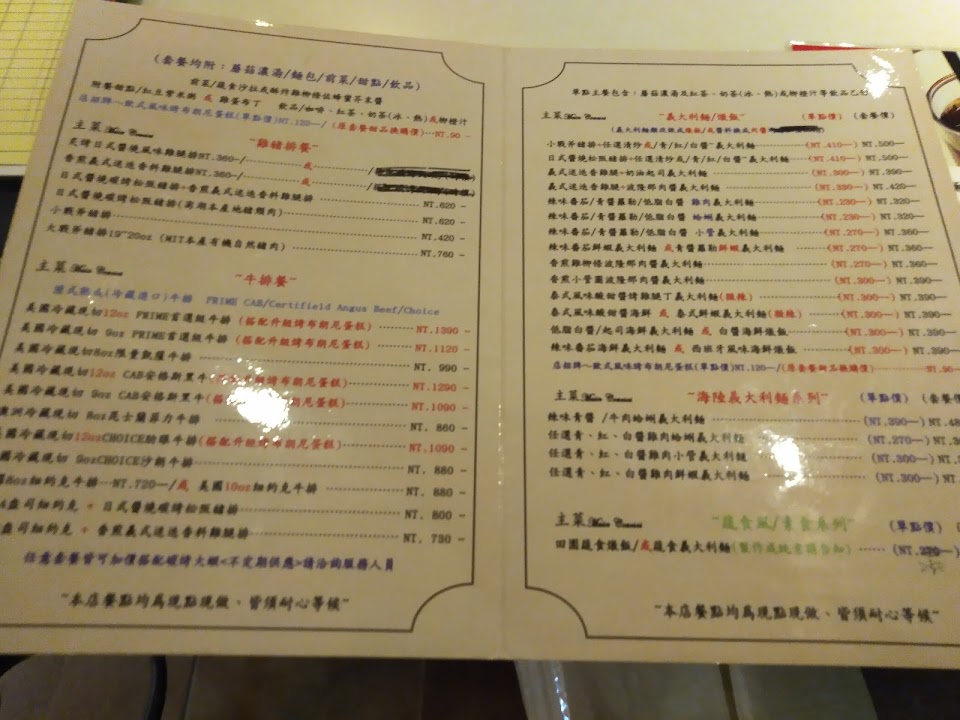 (套餐均附：蘑菇濃湯/麵包/前菜/甜點/飲品)
前菜/蔬食沙拉或酥炸雞柳條佐蜂蜜芥末醬
附餐甜點/紅豆紫米粥 或 雞蛋布丁 飲品/咖啡、紅茶、奶茶(冰、熱)或柳橙汁
店招牌～歐式風味烤布朗尼蛋糕(單點價)NT.120—/ (原套餐甜品換購價)…NT.90 -
主菜 Main Courses
"雞豬排餐"
炙烤日式醬燒風味雞腿排NT.360—/ 或 /
香煎義式迷迭香料雞腿排NT.360—/ 或 /
日式醬燒碳烤松阪豬排+香煎義式迷迭香料雞腿排 NT.620 -
日式醬燒碳烤松阪豬排(澎湖本產地豬頰肉) NT.620 -
小戰斧豬排 NT.420 -
大戰斧豬排19~20oz (MIT本產有機自然豬肉) NT.760 -
主菜 Main Courses
"牛排餐"
濕式熟成(冷藏進口)牛排 PRIME CAB/Certifield Angus Beef/Choice
美國冷藏現切12oz PRIME首選級牛排 (搭配升級烤布朗尼蛋糕) NT.1390 -
美國冷藏現切 9oz PRIME首選級牛排 (搭配升級烤布朗尼蛋糕) NT.1120 -
美國冷藏現切8oz限量凱薩牛排 NT. 990 -
美國冷藏現切12oz CAB安格斯黑牛 烤布朗尼蛋糕) NT.1290 -
美國冷藏現切 9oz CAB安格斯黑牛(搭 烤布朗尼蛋糕) NT.1090 -
澳洲冷藏現切 8oz昆士蘭菲力牛排 NT. 860 -
美國冷藏現切12ozCHOICE肋眼牛排(搭配升級烤布朗尼蛋糕) NT.1090 -
國冷藏現切 9ozCHOICE沙朗牛排 NT. 880 -
8oz紐約克牛排…NT.720—/或 美國10oz紐約克牛排 NT. 880 -
盎司紐約克 + 日式醬燒碳烤松阪豬排 NT. 800 -
盎司紐約克 + 香煎義式迷迭香料雞腿排 NT. 730 -
任意套餐皆可加價搭配碳烤大蝦<不定期供應>請洽詢服務人員
"本店餐點均為現點現做、皆須耐心等候"
單點主餐包含：蘑菇濃湯及紅茶、奶茶(冰、熱)或柳橙汁等飲品乙
主菜 Main Courses "義大利麵/燉飯" (單點價) (套餐價)
(義大利麵飯
小戰斧豬排+任選清炒或/青/紅/白醬"義大利麵 (NT.410—) NT.500—
日式醬燒松阪豬排+任選清炒或/青/紅/白醬"義大利麵 (NT.410—) NT.500—
義式迷迭香雞腿+奶油起司義大利麵 (NT.300—) NT.390—
義式迷迭香雞腿+波隆那肉醬義大利麵 (NT.330—) NT.420—
辣味番茄/青醬羅勒/低脂白醬 雞肉義大利麵 (NT.230—) NT.320—
辣味番茄/青醬羅勒/低脂白醬 蛤蜊義大利麵 (NT.230—) NT.320—
辣味番茄/青醬羅勒/低脂白醬 小管義大利麵 (NT.270—) NT.360—
辣味番茄鮮蝦義大利麵 或青醬羅勒鮮蝦義大利麵 (NT.270—) NT.360—
香煎雞柳條波隆那肉醬義大利麵 (NT.270—) NT.360—
香煎小管圈波隆那肉醬義大利麵 (NT.300—) NT.390—
泰式風味酸甜醬烤雞腿丁義大利麵(微辣) (NT.300—) NT.390—
泰式風味酸甜海鮮 或 泰式鮮蝦義大利麵(微辣) (NT.300—) NT.390—
低脂白醬/起司海鮮義大利麵 或 白醬海鮮燉飯 (NT.300—) NT.390—
辣味番茄海鮮義大利麵 或 西班牙風味海鮮燉飯 (NT.300—) NT.390—
店招牌～歐式風味烤布朗尼蛋糕(單點價)NT.120—/(原套餐甜品換購價) NT.90—
主菜 Main Courses "海陸義大利麵系列" (單點價) (套餐
辣味青醬 /牛肉蛤蜊義大利麵 (NT.390—) NT.48
任選青、紅、白醬雞肉蛤蜊義大利麵 (NT.270—) NT.3
任選青、紅、白醬雞肉小管義大利麵 (NT.300—) NT.
任選青、紅、白醬雞肉鮮蝦義大利麵 (NT.300—) NT.
主菜 Main Courses "蔬食風/素食系列" (單點價)
田園蔬食燉飯/或蔬食義大利麵(製作 告知) (NT.
"本店餐點均為現點現做、皆須耐心等候"